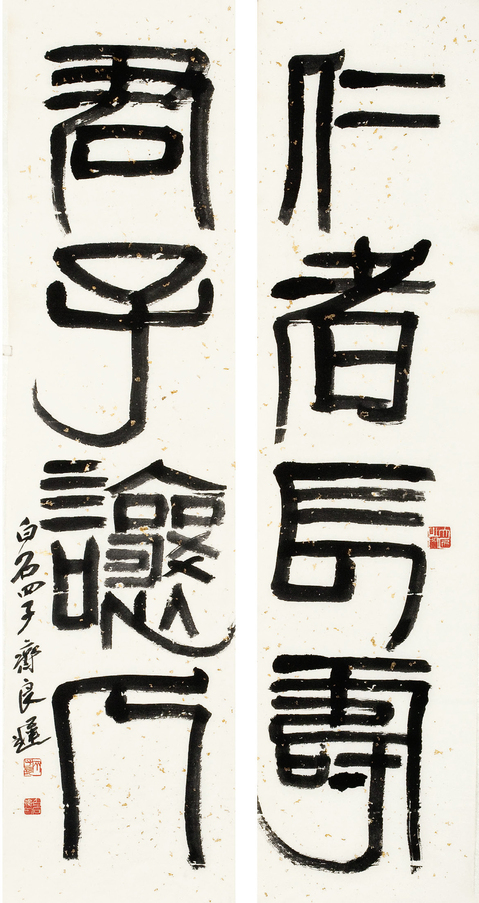 仁者長壽
君子人
白石四子齊良遲